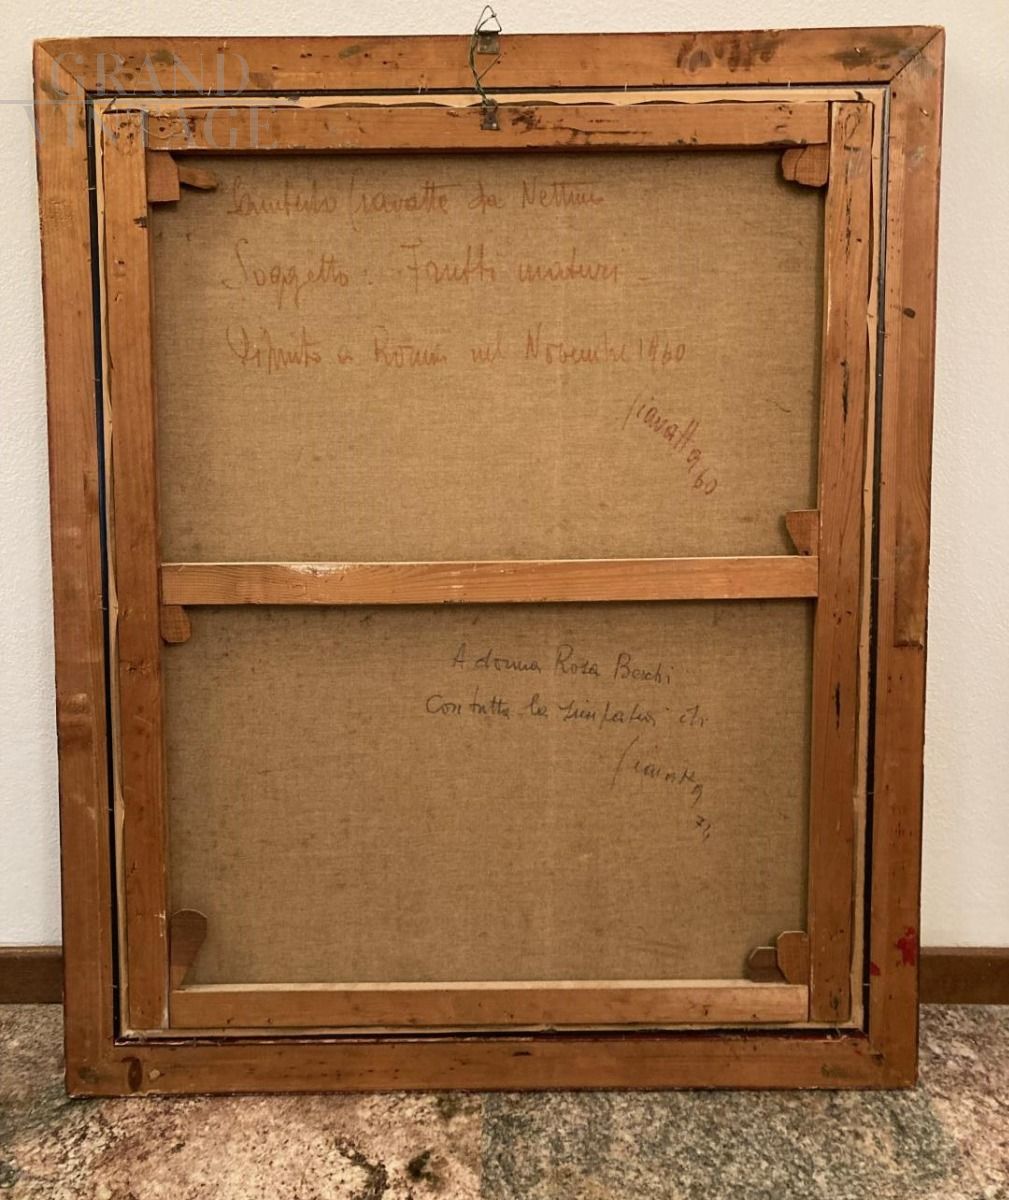 GRAND
VINTAGE
Lamberto Ciavatta da Nettuno
Soggetto: Frutti maturi -
Dipinto a Roma nel Novembre 1960
Ciavatta 60
A donna Rosa
Con tutta la simpatia di
Ciavatta